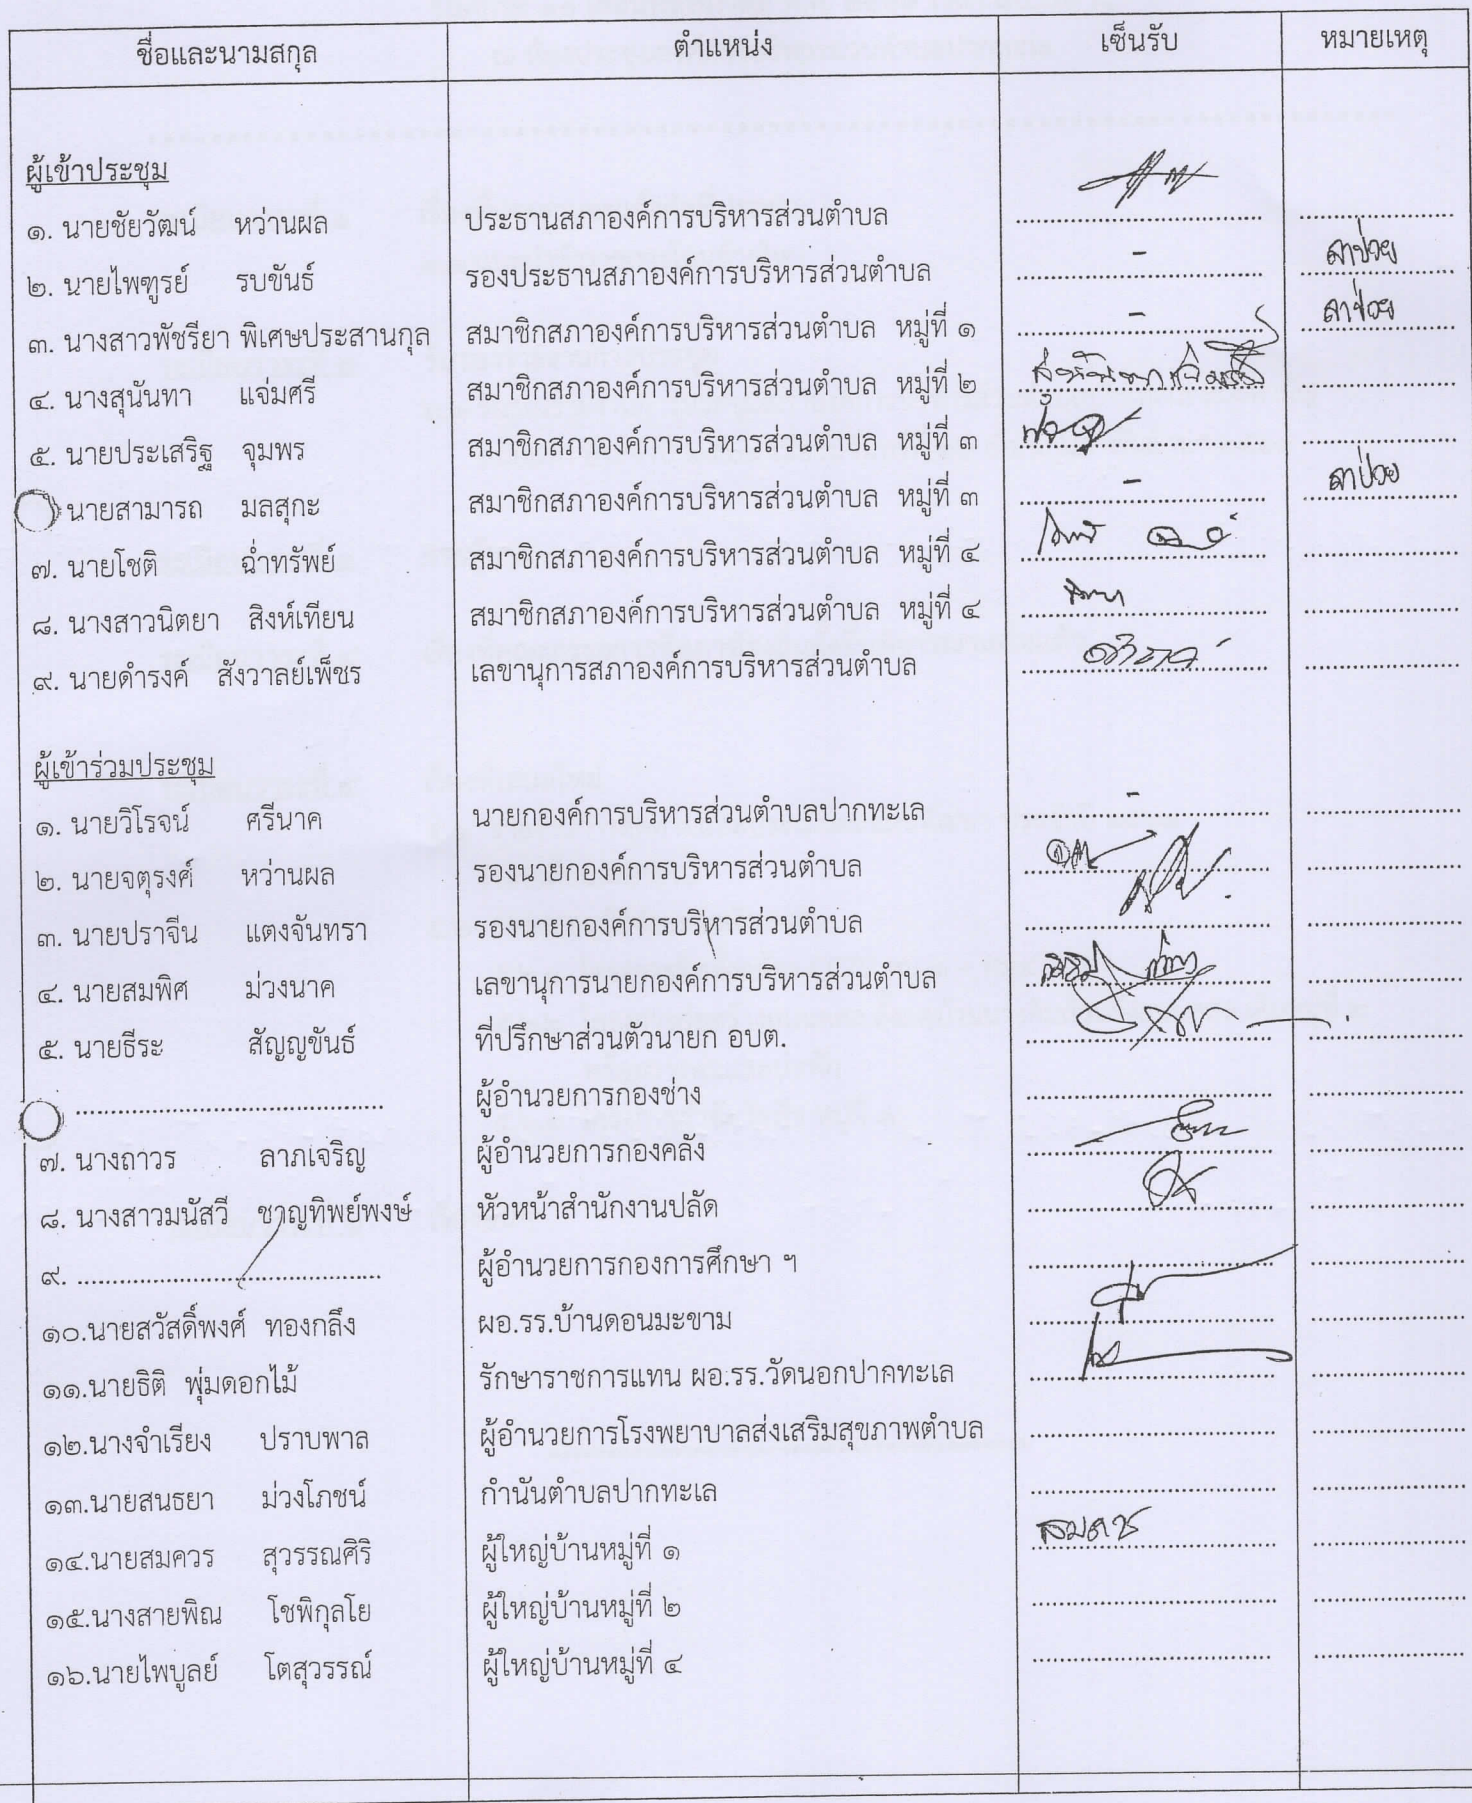 ชื่อและนามสกุล ตำแหน่ง เซ็นรับ หมายเหตุ
ผู้เข้าประชุม
๑. นายชัยวัฒน์ หว่านผล ประธานสภาองค์การบริหารส่วนตำบล
๒. นายไพฑูรย์ รบขันธ์ รองประธานสภาองค์การบริหารส่วนตำบล - ลาป่วย
๓. นางสาวพัชรียา พิเศษประสานกุล สมาชิกสภาองค์การบริหารส่วนตำบล หมู่ที่ ๑ - ลาป่วย
๔. นางสุนันทา แจ่มศรี สมาชิกสภาองค์การบริหารส่วนตำบล หมู่ที่ ๒
๕. นายประเสริฐ จุมพร สมาชิกสภาองค์การบริหารส่วนตำบล หมู่ที่ ๓
นายสามารถ มลสุกะ สมาชิกสภาองค์การบริหารส่วนตำบล หมู่ที่ ๓ - ลาป่วย
๗. นายโชติ ฉ่ำทรัพย์ สมาชิกสภาองค์การบริหารส่วนตำบล หมู่ที่ ๔
๘. นางสาวนิตยา สิงห์เทียน สมาชิกสภาองค์การบริหารส่วนตำบล หมู่ที่ ๔
๙. นายดำรงค์ สังวาลย์เพ็ชร เลขานุการสภาองค์การบริหารส่วนตำบล
ผู้เข้าร่วมประชุม
๑. นายวิโรจน์ ศรีนาค นายกองค์การบริหารส่วนตำบลปากทะเล -
๒. นายจตุรงศ์ หว่านผล รองนายกองค์การบริหารส่วนตำบล
๓. นายปราจีน แตงจันทรา รองนายกองค์การบริหารส่วนตำบล
๔. นายสมพิศ ม่วงนาค เลขานุการนายกองค์การบริหารส่วนตำบล
๕. นายธีระ สัญญขันธ์ ที่ปรึกษาส่วนตัวนายก อบต.
ผู้อำนวยการกองช่าง
๗. นางถาวร ลาภเจริญ ผู้อำนวยการกองคลัง
๘. นางสาวมนัสวี ชาญทิพย์พงษ์ หัวหน้าสำนักงานปลัด
๙. ........................................ ผู้อำนวยการกองการศึกษา ฯ
๑๐.นายสวัสดิ์พงศ์ ทองกลึง ผอ.รร.บ้านดอนมะขาม
๑๑.นายธิติ พุ่มดอกไม้ รักษาราชการแทน ผอ.รร.วัดนอกปากทะเล
๑๒.นางจำเรียง ปราบพาล ผู้อำนวยการโรงพยาบาลส่งเสริมสุขภาพตำบล
๑๓.นายสนธยา ม่วงโภชน์ กำนันตำบลปากทะเล
๑๔.นายสมควร สุวรรณศิริ ผู้ใหญ่บ้านหมู่ที่ ๑
๑๕.นางสายพิณ โชพิกุลโย ผู้ใหญ่บ้านหมู่ที่ ๒
๑๖.นายไพบูลย์ โตสุวรรณ์ ผู้ใหญ่บ้านหมู่ที่ ๔